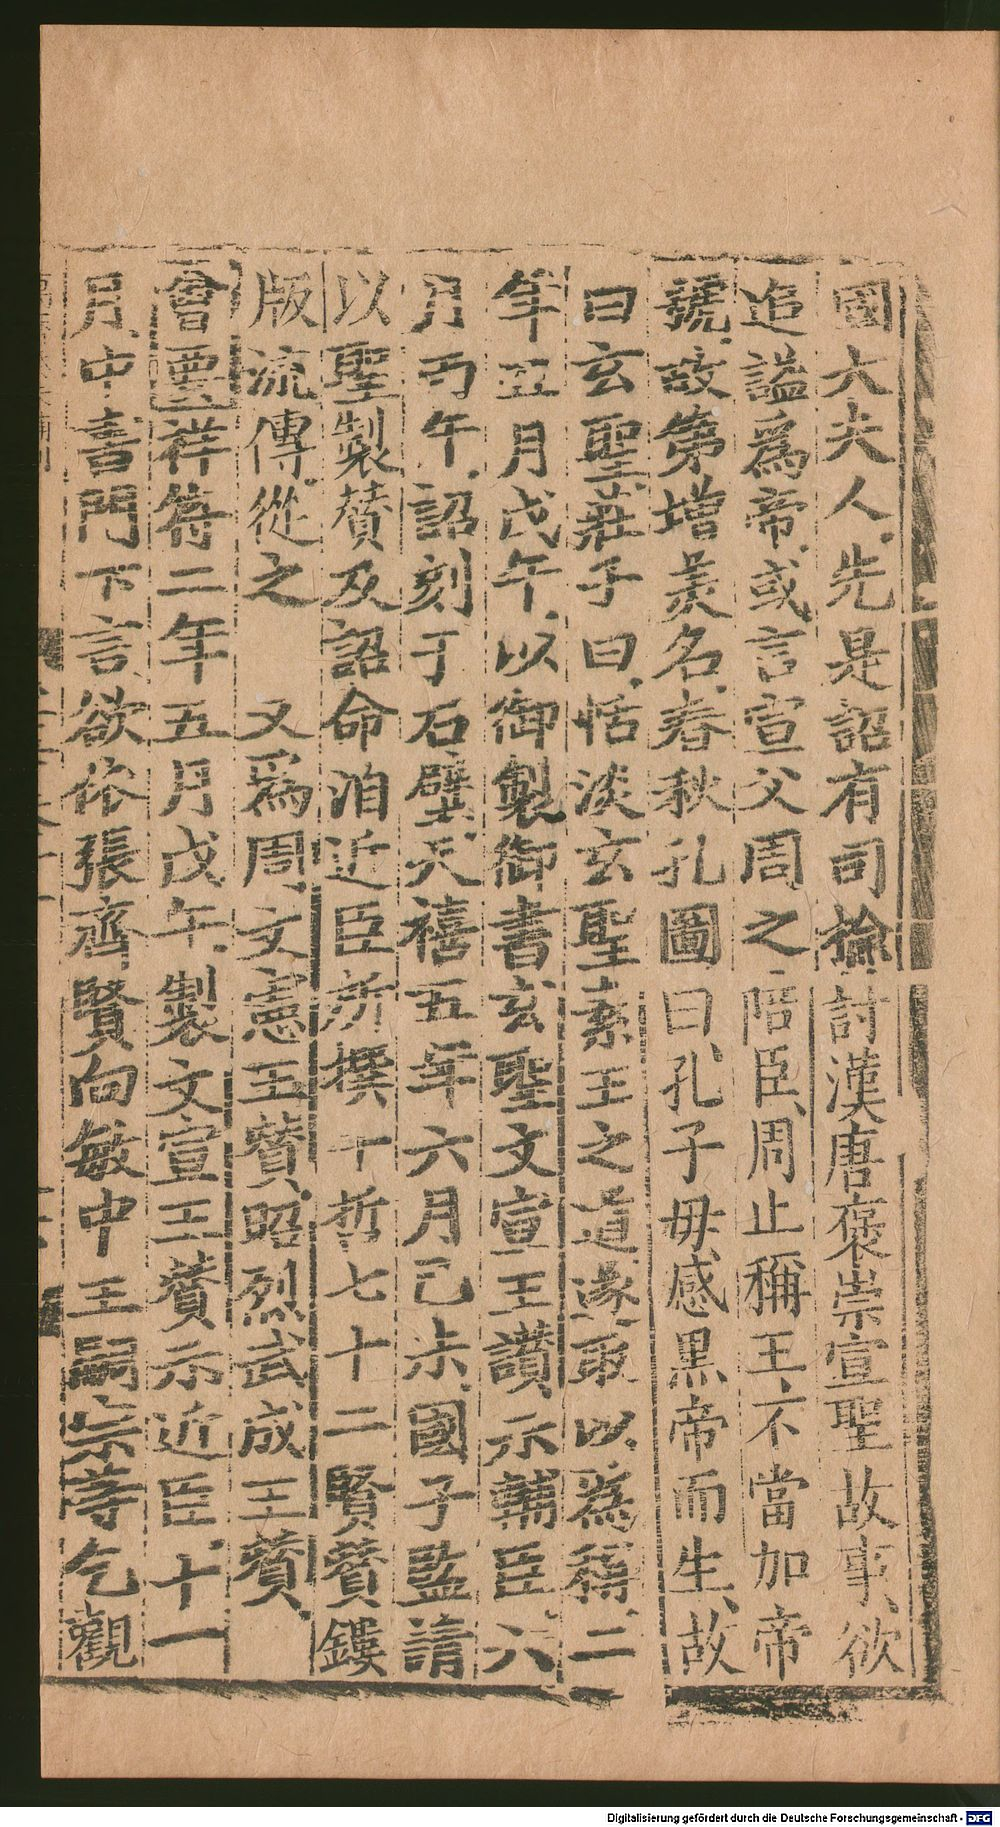 國大夫人先是詔有司撿討漢唐褒崇宣聖故事欲
追謚爲帝或言宣父周之陪臣周止稱王不當加帝
號故第增美名春秋孔圖曰孔子母感黑帝而生故
曰玄聖莊子曰恬淡玄聖素王之道遂取以爲稱二
年五月戊午以御製御書玄聖文宣王讚示輔臣六
月丙午詔刻于石壁天禧五年六月己未國子監請
以聖製贊及詔命洎近臣所撰十哲七十二賢贊鏤
版流傳從之　又爲周文憲王贊昭烈武成王贊
會要祥符二年五月戊午製文宣王贊示近臣十一
月中書門下言欲俗張齊賢向敏中王嗣宗等乞觀
Digitalisierung gefördert durch die Deutsche Forschungsgemeinschaft - DFG